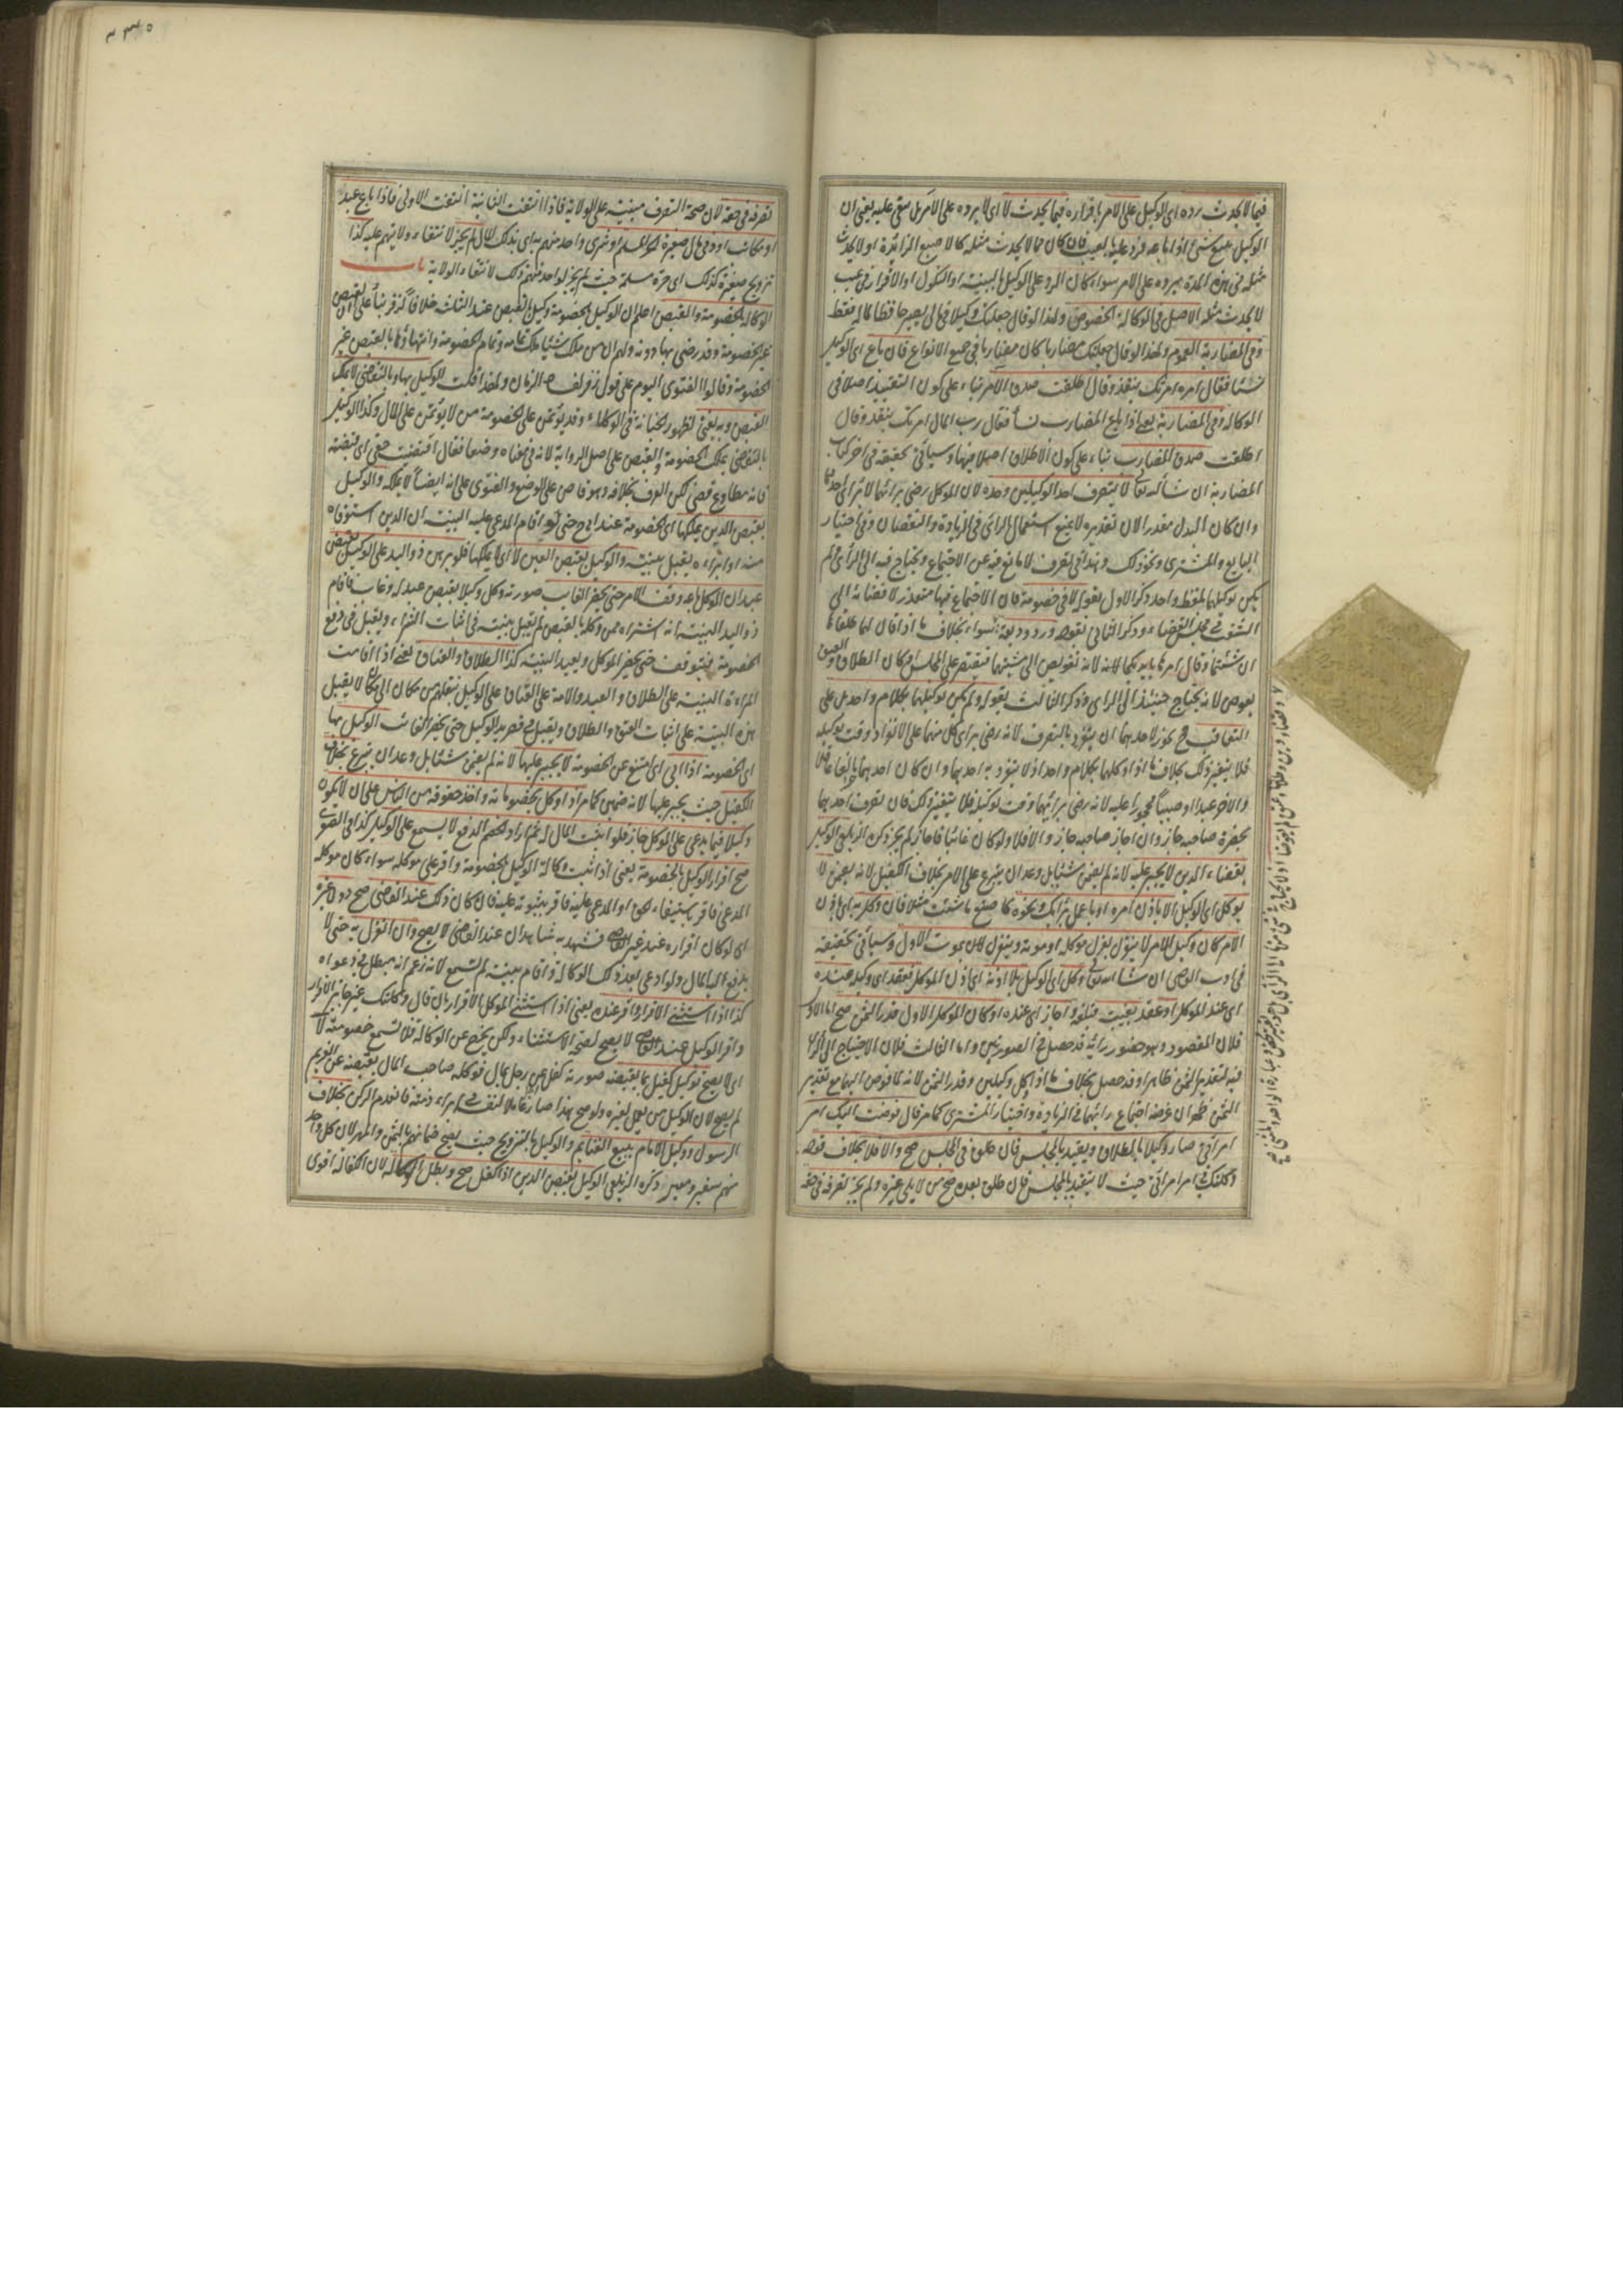 فيما لا يحدث رده اى الوكيل على الامر باقراره فيما يحدث لا اى لا يرده على الامر بل يبقى عليه يعنى ان
الوكيل ببيع شئ اذا باعه فرد عليه بالعيب فان كان مما لا يحدث مثله كالاصبع الزائدة او لا يحدث
مثله فى هذه المدة يرده على الامر سواء كان الرد على الوكيل بالبينة او النكول او الاقرار فى عيب
لا يحدث مثله الاصل فى الوكالة الخصوص ولهذا لو قال جعلتك وكيلا فى مالى يصير حافظا لماله فقط
وفى المضاربة العموم ولهذا لو قال جعلتك مضاربا كان مضاربا فى جميع الانواع فان باع اى الوكيل
نسئا فقال امره امرتك بنقد وقال اطلقت صدق الامر بناء على كون التقييد اصلا فى
الوكالة وفى المضاربة يعنى اذا باع المضارب نسأ فقال رب المال امرتك بنقد وقال
اطلقت صدق المضارب بناء على كون الاطلاق اصلا فيها وسيأتى تحقيقه فى اخر كتاب
المضاربة ان شاء الله تعالى لا يتصرف احد الوكيلين وحده لان الموكل رضى برائهما لا برأى احدهما
وان كان البدل مقدرا لان تقديره لا يمنع استعمال الرائ فى الزيادة والنقصان وفى اختيار
البايع والمشترى ونحو ذلك وهذا فى تصرف لا مانع فيه عن الاجتماع ويحتاج فيه الى الرأى ولم
يكن توكيلهما بلفظ واحد وذكر الاول بقوله لا فى خصومة فان الاجتماع فيها متعذر لافضائه الى
الشغب فى مجلس القضاء وذكر الثانى بقوله ورد وديعة سواء بخلاف ما اذا قال لهما طلقاها
ان شئتما وقال امرها بايديكما لانه لانه تفويض الى مشيتهما فيقتصر على المجلس وكان الطلاق والعتق
بعوض لانه يحتاج حينئذ الى الراى وذكر الثالث بقوله ولم يكن توكيلهما بكلام واحد بل على
التعاقب فح يجوز لاحدهما ان ينفرد بالتصرف لانه رضى برأى كل منهما على الانفراد وقت توكيله
فلا يتغير ذلك بخلاف ما اذا وكلهما بكلام واحد اذ لا ينفرد به احدهما وان كان احدهما بالغا عاقلا
والاخر عبدا او صبيا محجورا عليه لانه رضى برأيهما وقت توكيله فلا يتغير ذلك فان تصرف احدهما
بحضرة صاحبه جاز وان اجاز صاحبه جاز والا فلا ولو كان غائبا فاجاز لم يجز ذكره الزيلعى الوكيل
بقضاء الدين لا يجبر عليه لانه لم يضمن شئا بل وعد ان يتبرع على الامر بخلاف الكفيل لانه يضمن لا
يوكل اى الوكيل الا باذن امره او باعمل برأيك ونحوه كاصنع ما شئت مثلا فان وكل به اى باذن
الامر كان وكيل الامر لا ينعزل بعزل موكله او موته وينعزلان بموت الاول وسيأتى تحقيقه
فى ادب القاضى ان شاء الله تعالى وكل اى الوكيل بلا اذنه اى اذن الموكل فعقد اى وكيله عنده
اى عند الموكل او عقد بغيبته فبلغه واجاز اى عنده او كان الموكل الاول قدر الثمن صح اما الاول
فلان المقصود وهو حضور رائه قد حصل فى الصورتين واما الثالث فلان الاحتياج الى الراى
فيه لتقدير الثمن ظاهرا وقد حصل بخلاف ما اذا وكل وكيلين وقدر الثمن لانه لما فوض اليهما مع تقدير
الثمن ظهر ان غرضه اجتماع رائهما فى الزيادة واختيار المشترى كما مر قال فوضت اليك امر
امرأتى صار وكيلا بالطلاق ويقيد بالمجلس فان طلق فى المجلس صح والا فلا بخلاف قوله
وكلتك فى امر امرأتى حيث لا يتقيد بالمجلس فان طلق بعده صح من لا يلى غيره ولم يجز تصرفه فى حقه
٢٣٥
تصرفه فى حقه لان صحة التصرف مبنية على الولاية فاذا انتفت الثانية انتفت الاولى فاذا باع عبد
او مكاتب او ذمى مال صغيره الحر المسلم او شرى واحد منهم به اى بذلك المال لم يجز لانتفاء ولايتهم عليه كذا
تزويج صغيرة كذلك اى حرة مسلمة حيث لم يجز لواحد منهم ذلك لانتفاء الولاية باب
الوكالة بالخصومة والقبض اعلم ان الوكيل بالخصومة وكيل بالقبض عند الثلثة خلافا لزفر بناء على ان القبض
غير الخصومة وقد رضى بها دونه ولهم ان من ملك شئا ملك تمامه وتمام الخصومة وانتهاؤها بالقبض غير
الخصومة وقالوا الفتوى اليوم على قول زفر لفساد الزمان ولهذا قلت لا الوكيل بها وبالتقاضى لا يملك
القبض وبه يفتى لظهور الخيانة فى الوكلاء وقد يؤتمن على الخصومة من لا يؤتمن على المال وكذا الوكيل
بالتقاضى يملك الخصومة والقبض على اصل الرواية لانه فى معناه وضعا فقال اقتضيت حقى اى قبضته
فانه مطاوع قضى لكن العرف بخلافه وهو قاض على الوضع والفتوى على انه ايضا لا يملكه والوكيل
بقبض الدين يملكها اى الخصومة عند ابى ح حتى لو اقام المدعى عليه البينة ان الدين استوفاه
منه او ابراءه يقبل بينته والوكيل بقبض العين لا اى لا يملكها فلو برهن ذو اليد على الوكيل بقبض
عبد ان الموكل باعه وقف الامر حتى يحضر الغايب صورته وكل وكيلا بقبض عبد له وغاب فاقام
ذو اليد البينة انه اشتراه من وكله بالقبض لم تقبل بينته فى اثبات الشراء ويقبل فى دفع
الخصومة فيتوقف حتى يحضر الموكل ويعيد البينة كذا الطلاق والعتاق يعنى اذا اقامت
المراءة البينة على الطلاق والعبد والامة على العتاق على الوكيل بنقلهم من مكان الى مكان لا يقبل
هذه البينة على اثبات العتق والطلاق ويقبل فى قصر يد الوكيل حتى يحضر الغائب الوكيل بها
اى الخصومة اذا ابى اى امتنع عن الخصومة لا يجبر عليها لانه لم يضمن شئا بل وعد ان يتبرع بخلاف
الكفيل حيث يجبر عليها لانه ضمين كما مر اراد وكل بخصوماته واخذ حقوقه من الناس على ان لا يكون
وكيلا فيما يدعى على الموكل جاز فلو اثبت المال له ثم اراد الخصم الدفع لا يسمع على الوكيل كذا فى الصغرى
صح اقرار الوكيل بالخصومة يعنى اذا ثبت وكالة الوكيل بالخصومة واقر على موكله سواء كان موكله
المدعى فاقر باستيفاء الحق او المدعى عليه فاقر بثبوته عليه فان كان ذلك عند القاضى صح دون غيره
اى لو كان اقراره عند غير القاضى فشهد به شاهدان عند القاضى لا يصح وان انعزل به حتى لا
يدفع اليه المال ولو ادعى بعد ذلك الوكالة واقام بينة لم تسمع لانه زعم انه مبطل فى دعواه
كذا اذا استثنى الاقرار واقر عنده يعنى اذا استثنى الموكل الاقرار بان قال وكلتك غير جائز الاقرار
واقر الوكيل عند القاضى لا يصح لصحة الاستثناء ولكن يخرج عن الوكالة فلا تسمع خصومته لا
اى لا يصح توكيل كفيل بما يقبضه صورته كفل عن رجل بمال فوكله صاحب المال بقبضه عن الغريم
لم يصح لان الوكيل من يعمل لغيره ولو صح هذا صار عاملا لنفسه فى ابراء ذمته فانعدم الركن بخلاف
الرسول ووكيل الامام ببيع الغنايم والوكيل بالتزويج حيث يصح ضمانهم بالثمن والمهر لان كل واحد
منهم سفير ومعبر ذكره الزيلعى الوكيل بقبض الدين اذا كفل صح وبطل الوكالة لان الكفالة اقوى